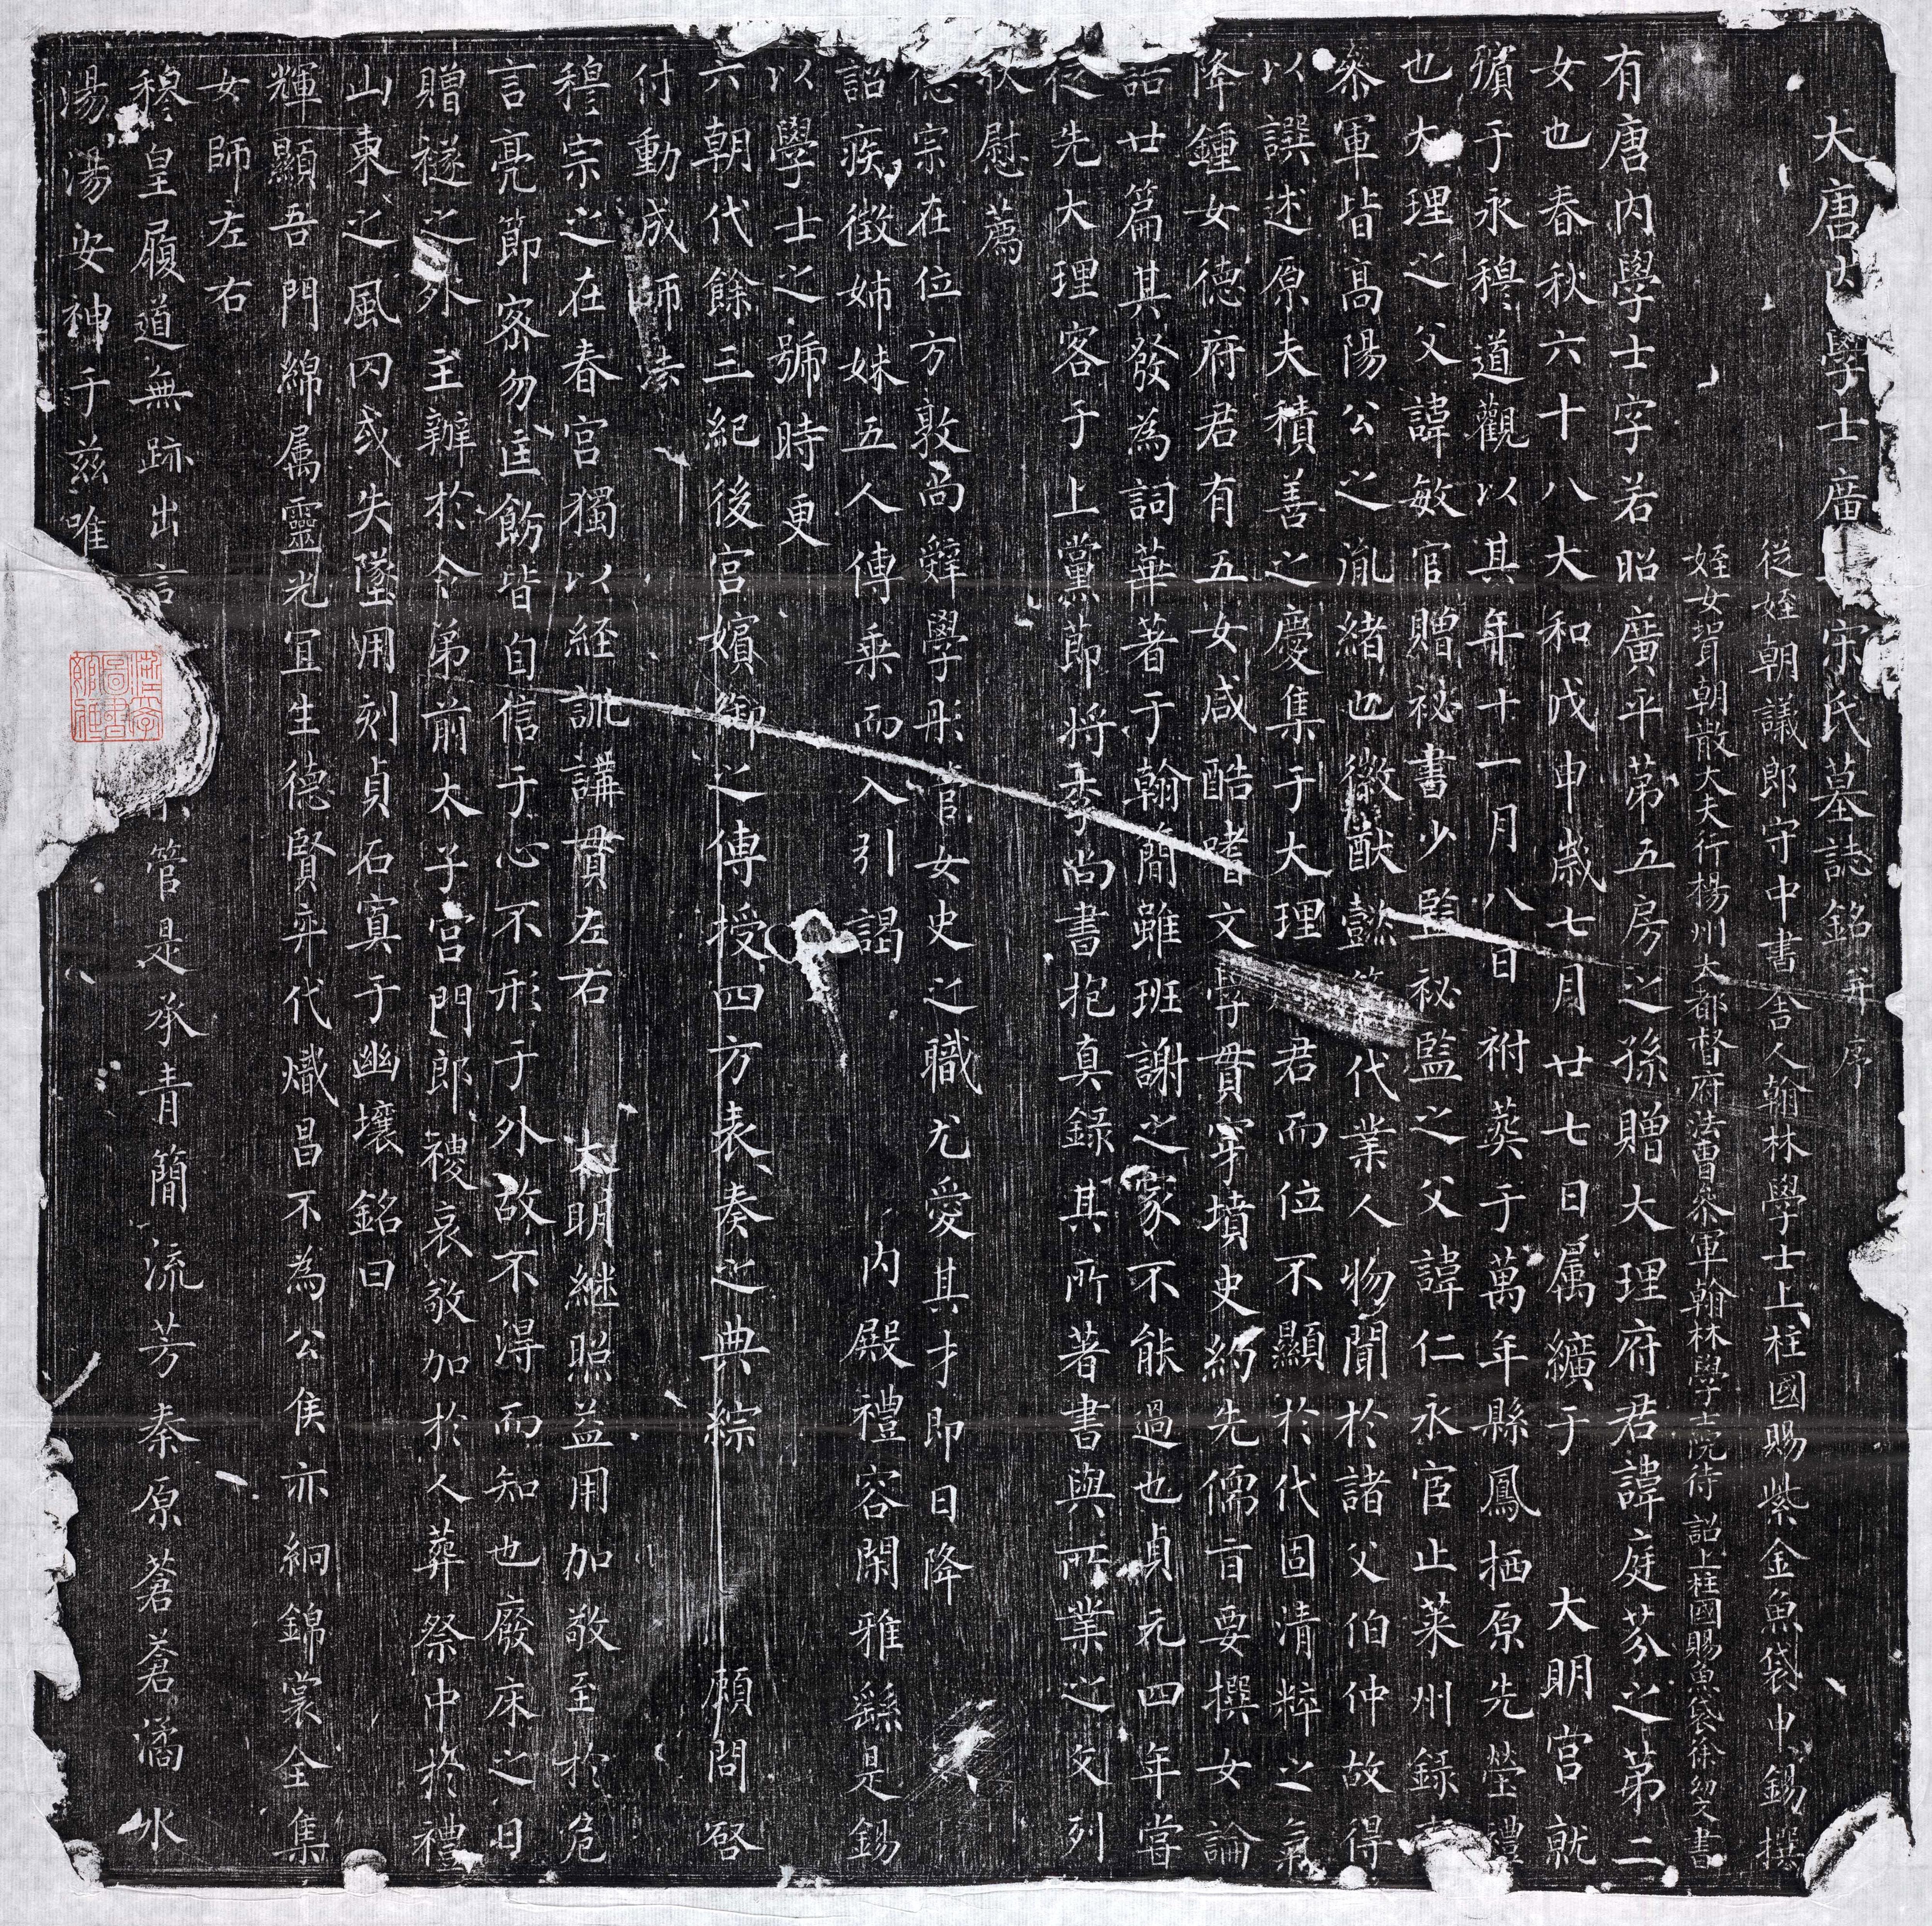 大唐內學士廣平宋氏墓誌銘并序
從姪朝議郎守中書舍人翰林學士上柱國賜紫金魚袋申錫撰
姪女聟朝散大夫行楊州大都督府法曹叅軍翰林學士院待詔上柱國賜魚袋徐幼文書
有唐內學士字若昭廣平苐五房之孫贈大理府君諱庭芬之苐二
女也春秋六十八大和戊申歲七月廿七日属纊于大明宮就
殯于永穆道觀以其年十一月八日祔葬于萬年縣鳳栖原先塋禮
也大理之父諱敏官贈祕書少監祕監之父諱仁永官止萊州錄
叅軍皆髙陽公之胤緒也徽猷懿代業人物聞於諸父伯仲故得
以譔述原夫積善之慶集于大理君而位不顯於代固清粹之氣
降鍾女德府君有五女咸酷嗜文學貫穿墳史約先儒百要撰女論
語廿篇其發為詞華著于翰簡雖班謝之家不能過也貞元四年嘗
從先大理客于上黨節將李尚書抱真錄其所著書與所業之文列
狀慰薦
德宗在位方敦尚辭學彤管女史之職尤愛其才即日降
詔疾徵姊妹五人傳乗而入引謁內殿禮容閑雅繇是錫
以學士之號時更
六朝代餘三紀後宮嬪御之傅授四方表奏之典綜顧問啓
付動成師法
穆宗之在春宮獨以経訓講貫左右大明継照益用加敬至於危
言亮節密勿匡飭皆自信于心不形于外故不得而知也廢床之日
贈襚之外主辦於令弟前太子宮門郎禝哀敬加於人葬祭中於禮
山東之風罔或失墜用刻貞石窴于幽壤銘曰
輝顯吾門綿属靈光冝生德賢弈代熾昌不為公侯亦絅錦裳全集
女師左右
穆皇履道無跡出言管是承青簡流芳秦原蒼蒼潏水
湯湯安神于兹唯